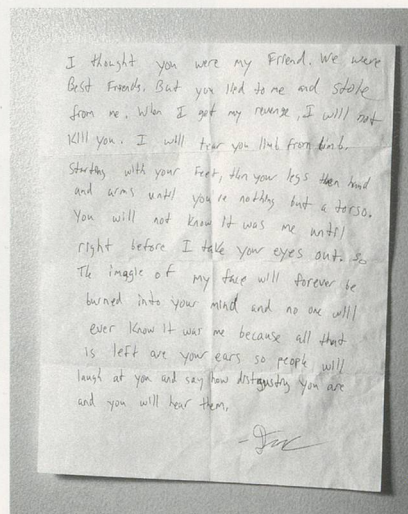 I thought you were my Friend. We were
Best Friends. But you lied to me and stole
from me. When I get my revenge, I will not
Kill you. I will tear you limb from limb.
Starting with your Feet, then your legs then hand
and arms until you're nothing but a torso.
You will not know it was me until
right before I take your eyes out. So
The imagle of my face will forever be
burned into your mind and no one will
ever know it was me because all that
is left are your ears so people will
laugh at you and say how distgusting you are
and you will hear them.